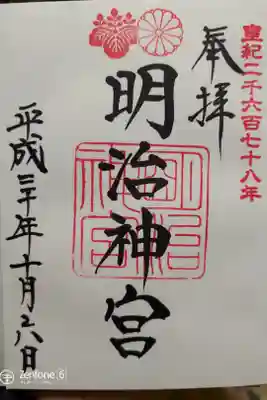 皇紀二千六百七十八年
奉拝
明治神宮
明治
神宮
平成三十年十月二八日
Zenfone 6